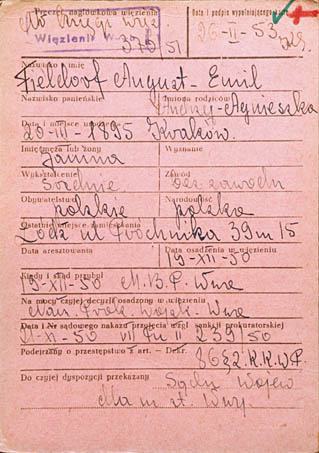 Pieczęć nagłówkowa więzienia
Więzienie W-wa I
376/51
Data i podpis wypełniającego
26-II-53
Nazwisko i imię
Fieldorf August-Emil
Nazwisko panieńskie
Imiona rodziców
Andrzej-Agnieszka
Data i miejsce urodzenia
20-III-1895 Kraków.
Imię męża lub żony
Wyznanie
Janina
Wykształcenie
Zawód
Średnie
bez zawodu
Obywatelstwo
Narodowość
polskie
polska
Ostatnie miejsce zamieszkania
Łódź ul. Próchnika 39 m 15
Data aresztowania
Data osadzenia w więzieniu
19-XII-50
Kiedy i skąd przybył
19-XII-50 M.B.P. W-wa
Na mocy czyjej decyzji osadzony w więzieniu
Nacz. Prok. Wojsk. W-wa
Data i Nr sądowego nakazu przyjęcia wzgl. sankcji prokuratorskiej
21-XI-50 VII Pn II 239/50
Podejrzany o przestępstwo z art. — Dekr.
86 § 2 K.K.W.P.
Do czyjej dyspozycji przekazany
Sądu Wojew
dla m. st. W-wy.